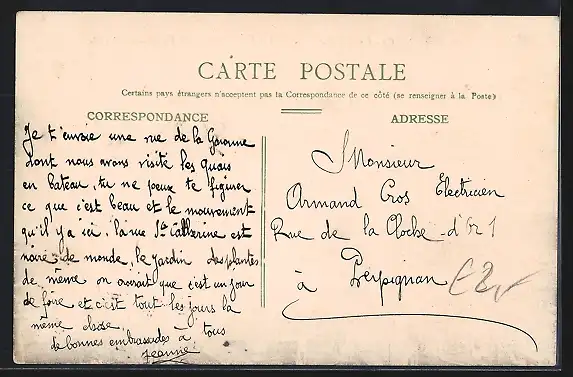 CARTE POSTALE
Certains pays étrangers n'acceptent pas la Correspondance de ce côté (se renseigner à la Poste)
CORRESPONDANCE
Je t'envoie une vue de la Garonne
dont nous avons visité les quais
en bateau, tu ne peux te figurer
ce que c'est beau et le mouvement
qu'il y a ici, la rue Ste Catherine est
noire de monde, le jardin des plantes
de même on croirait que c'est un jour
de foire et c'est tout les jours la
même chose.
de bonnes embrassades à tous
Jeanne
ADRESSE
Monsieur
Armand Cros Electricien
Rue de la Cloche d'Or 1
à Perpignan